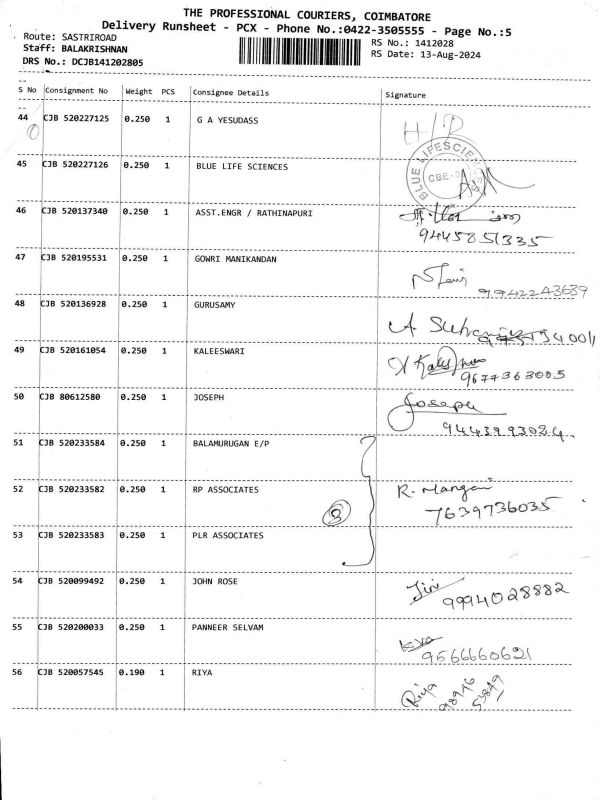 THE PROFESSIONAL COURIERS, COIMBATORE
Delivery Runsheet - PCX - Phone No.:0422-3505555 - Page No.:5
Route: SASTRIROAD
RS No.: 1412028
Staff: BALAKRISHNAN
RS Date: 13-Aug-2024
DRS No.: DCJB141202805
S No Consignment No Weight PCS Consignee Details Signature
44 CJB 520227125 0.250 1 G A YESUDASS H/P
BLUE LIFE SCIENCES
CBE
45 CJB 520227126 0.250 1 BLUE LIFE SCIENCES
46 CJB 520137340 0.250 1 ASST.ENGR / RATHINAPURI
9445851335
47 CJB 520195531 0.250 1 GOWRI MANIKANDAN
9942243639
48 CJB 520136928 0.250 1 GURUSAMY
49 CJB 520161054 0.250 1 KALEESWARI
9677363005
50 CJB 80612580 0.250 1 JOSEPH Joseph
9444393024
51 CJB 520233584 0.250 1 BALAMURUGAN E/P
52 CJB 520233582 0.250 1 RP ASSOCIATES R. Mangai
3 7639736035
53 CJB 520233583 0.250 1 PLR ASSOCIATES
54 CJB 520099492 0.250 1 JOHN ROSE
9994028882
55 CJB 520200033 0.250 1 PANNEER SELVAM
9566660621
56 CJB 520057545 0.190 1 RIYA Riya
98946
53849